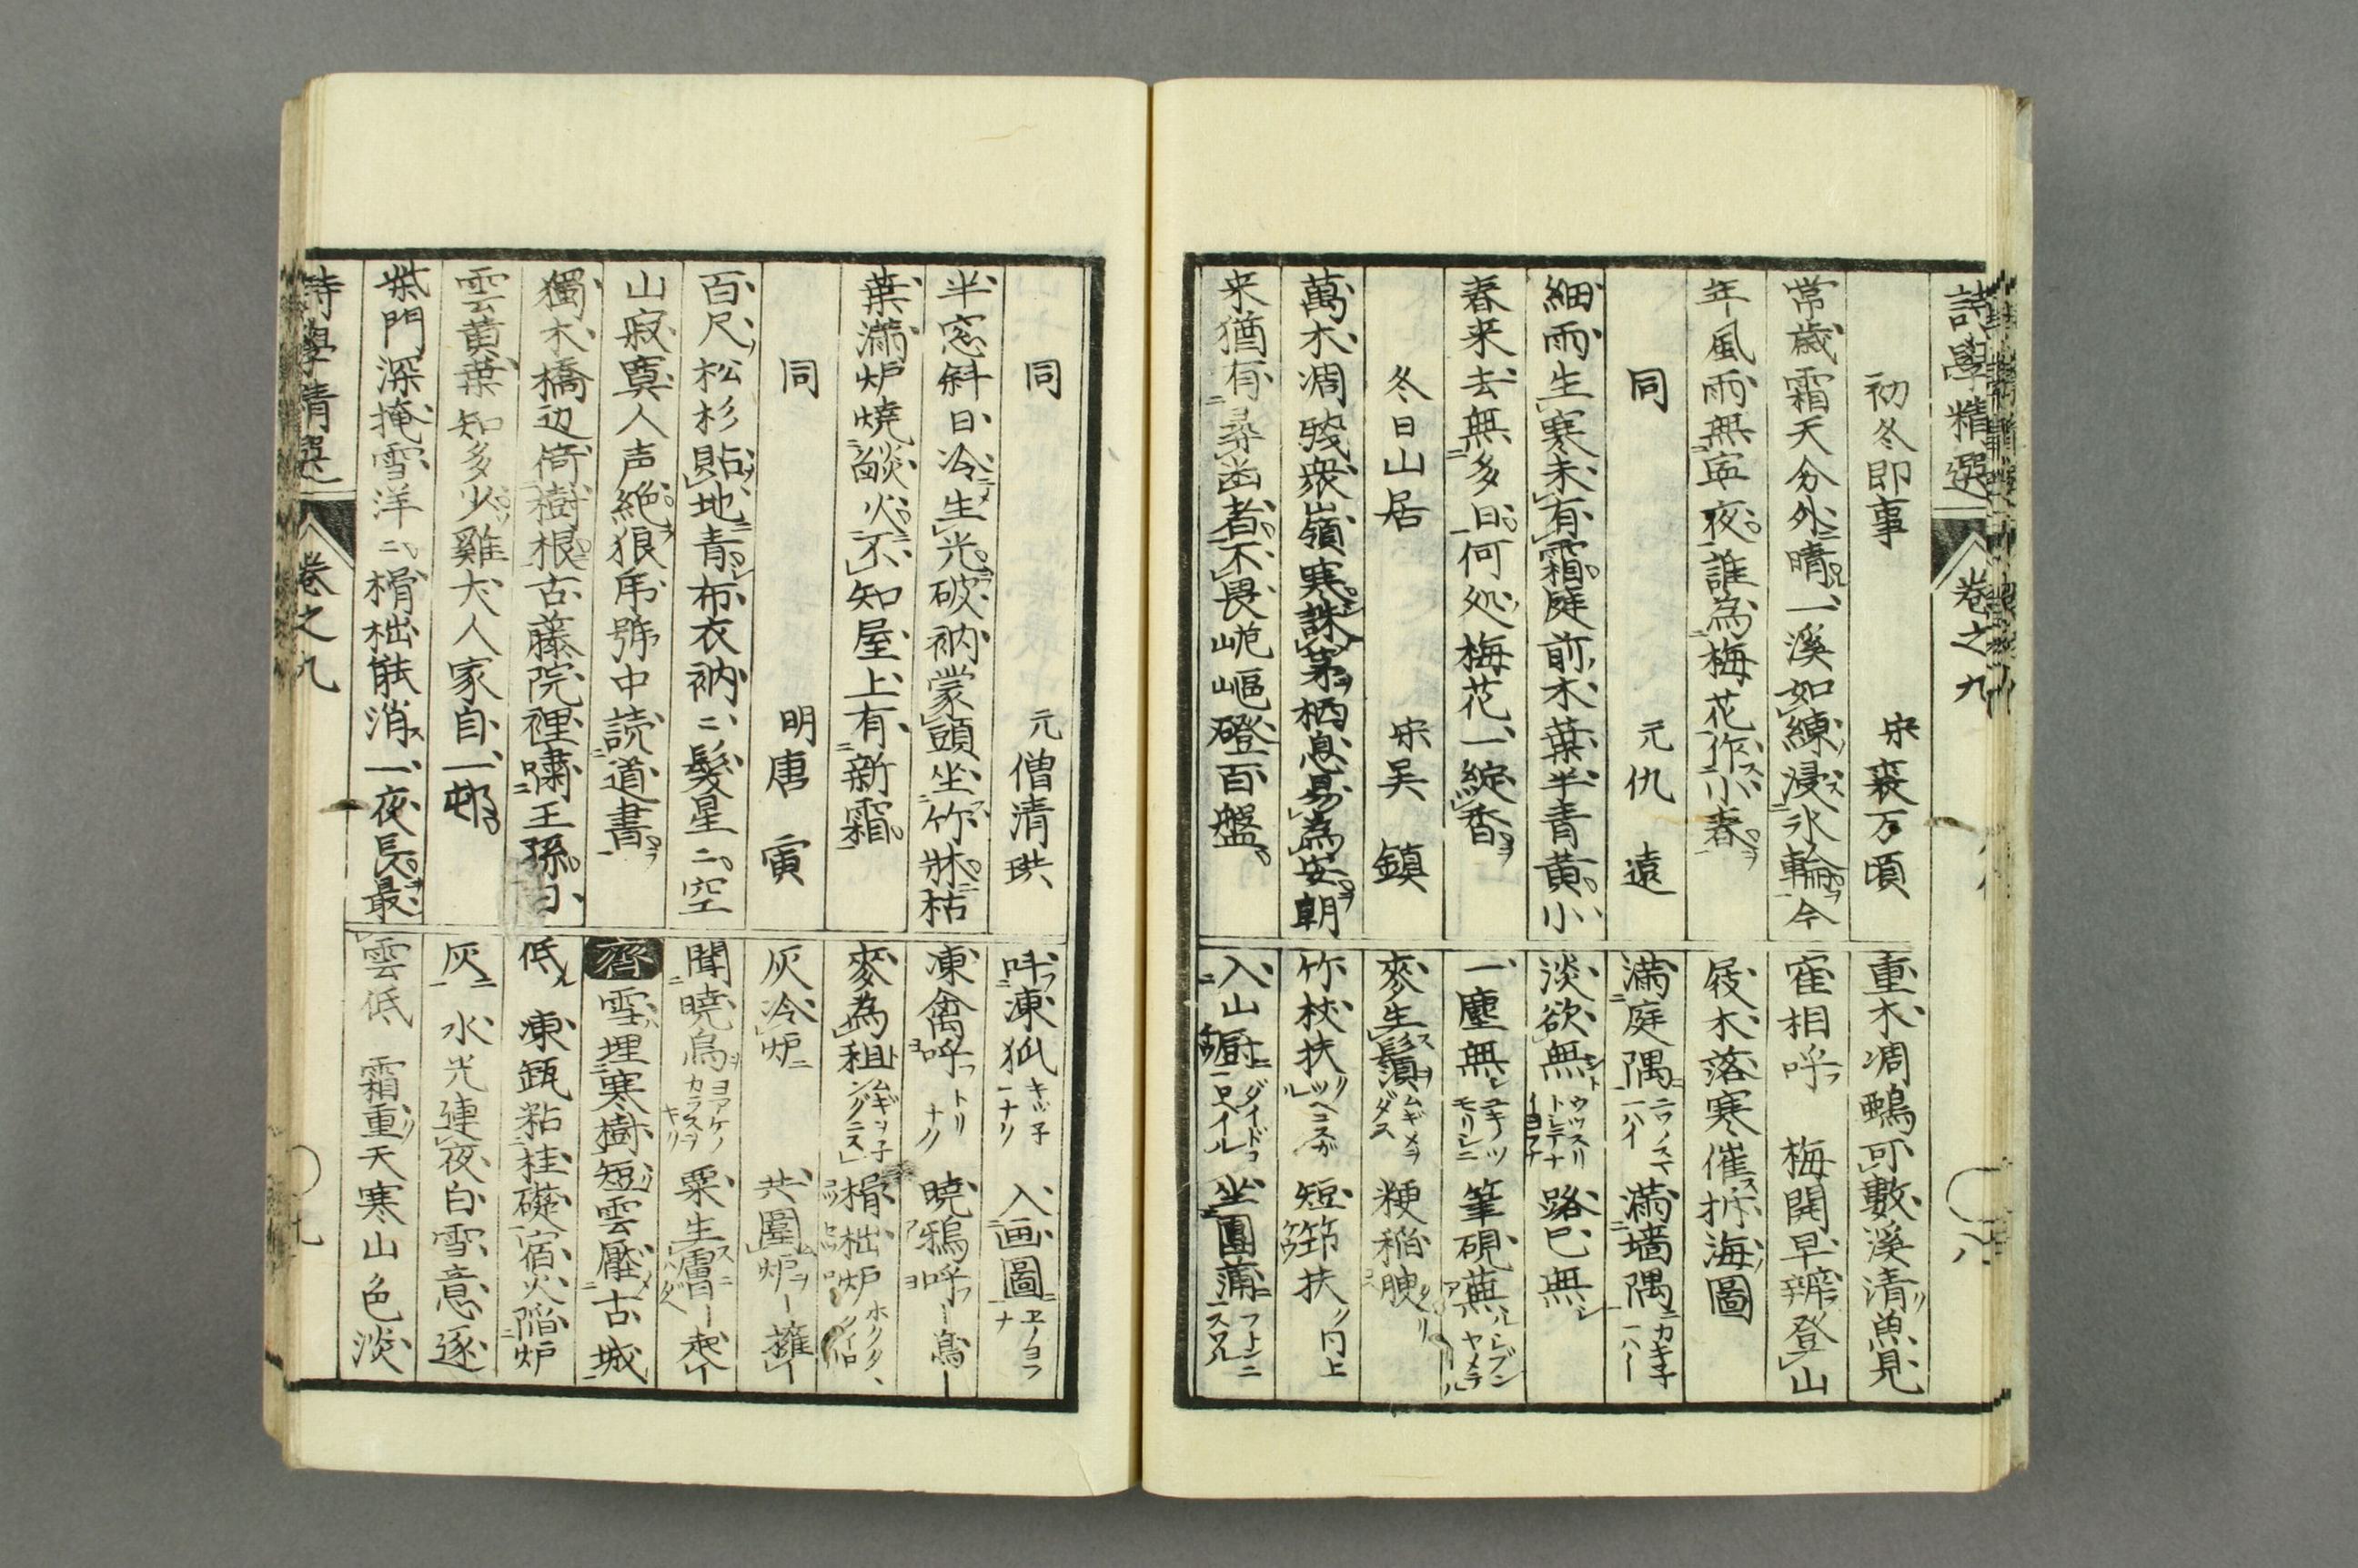 詩學精選 卷之九
初冬即事 宋裘万頃
常歳霜天分外晴一溪如練浸氷輪今
年風雨無寧夜誰為梅花作小春
同 元仇遠
細雨生寒未有霜庭前木葉半青黄小
春来去無多日何処梅花一綻香
冬日山居 宋吴鎮
萬木凋残衆嶺寒誅茅栖息易為安朝
来猶有尋幽者不畏崎嶇磴百盤
重木凋鵶可數溪清魚見
寉相呼 梅開早辨登山
屐木落寒催折海圖
滿庭隅 滿墻隅
淡欲無 路已無
一塵無 筆硯蕪
麥生鬚 粳稲腴
竹杖扶 短筇扶
入山厨 坐團蒲
同 元僧清珙
半窓斜日冷生光破衲蒙頭坐竹牀枯
葉滿炉燒焰火不知屋上有新霜
同 明唐寅
百尺松杉貼地青布衣衲ニ髮星ニ空
山寂寞人声絶狼乕號中読道書
獨木橋辺倚樹根古藤院裡嘯王孫白
雲黄葉知多少雞犬人家自一邨
柴門深掩雪洋ニ榾柮能消一夜長最
呌凍狐 入画圖
凍禽呼 曉鴉呼
麥為租 榾柮炉
灰冷炉 共圍炉 擁
聞曉烏 粟生膚 起
齊 雪埋寒樹短雲壓古城
低 凍瓶粘柱礎宿火陷炉
灰 水光連夜白雪意逐
雲低 霜重天寒山色淡
詩學精選 卷之九